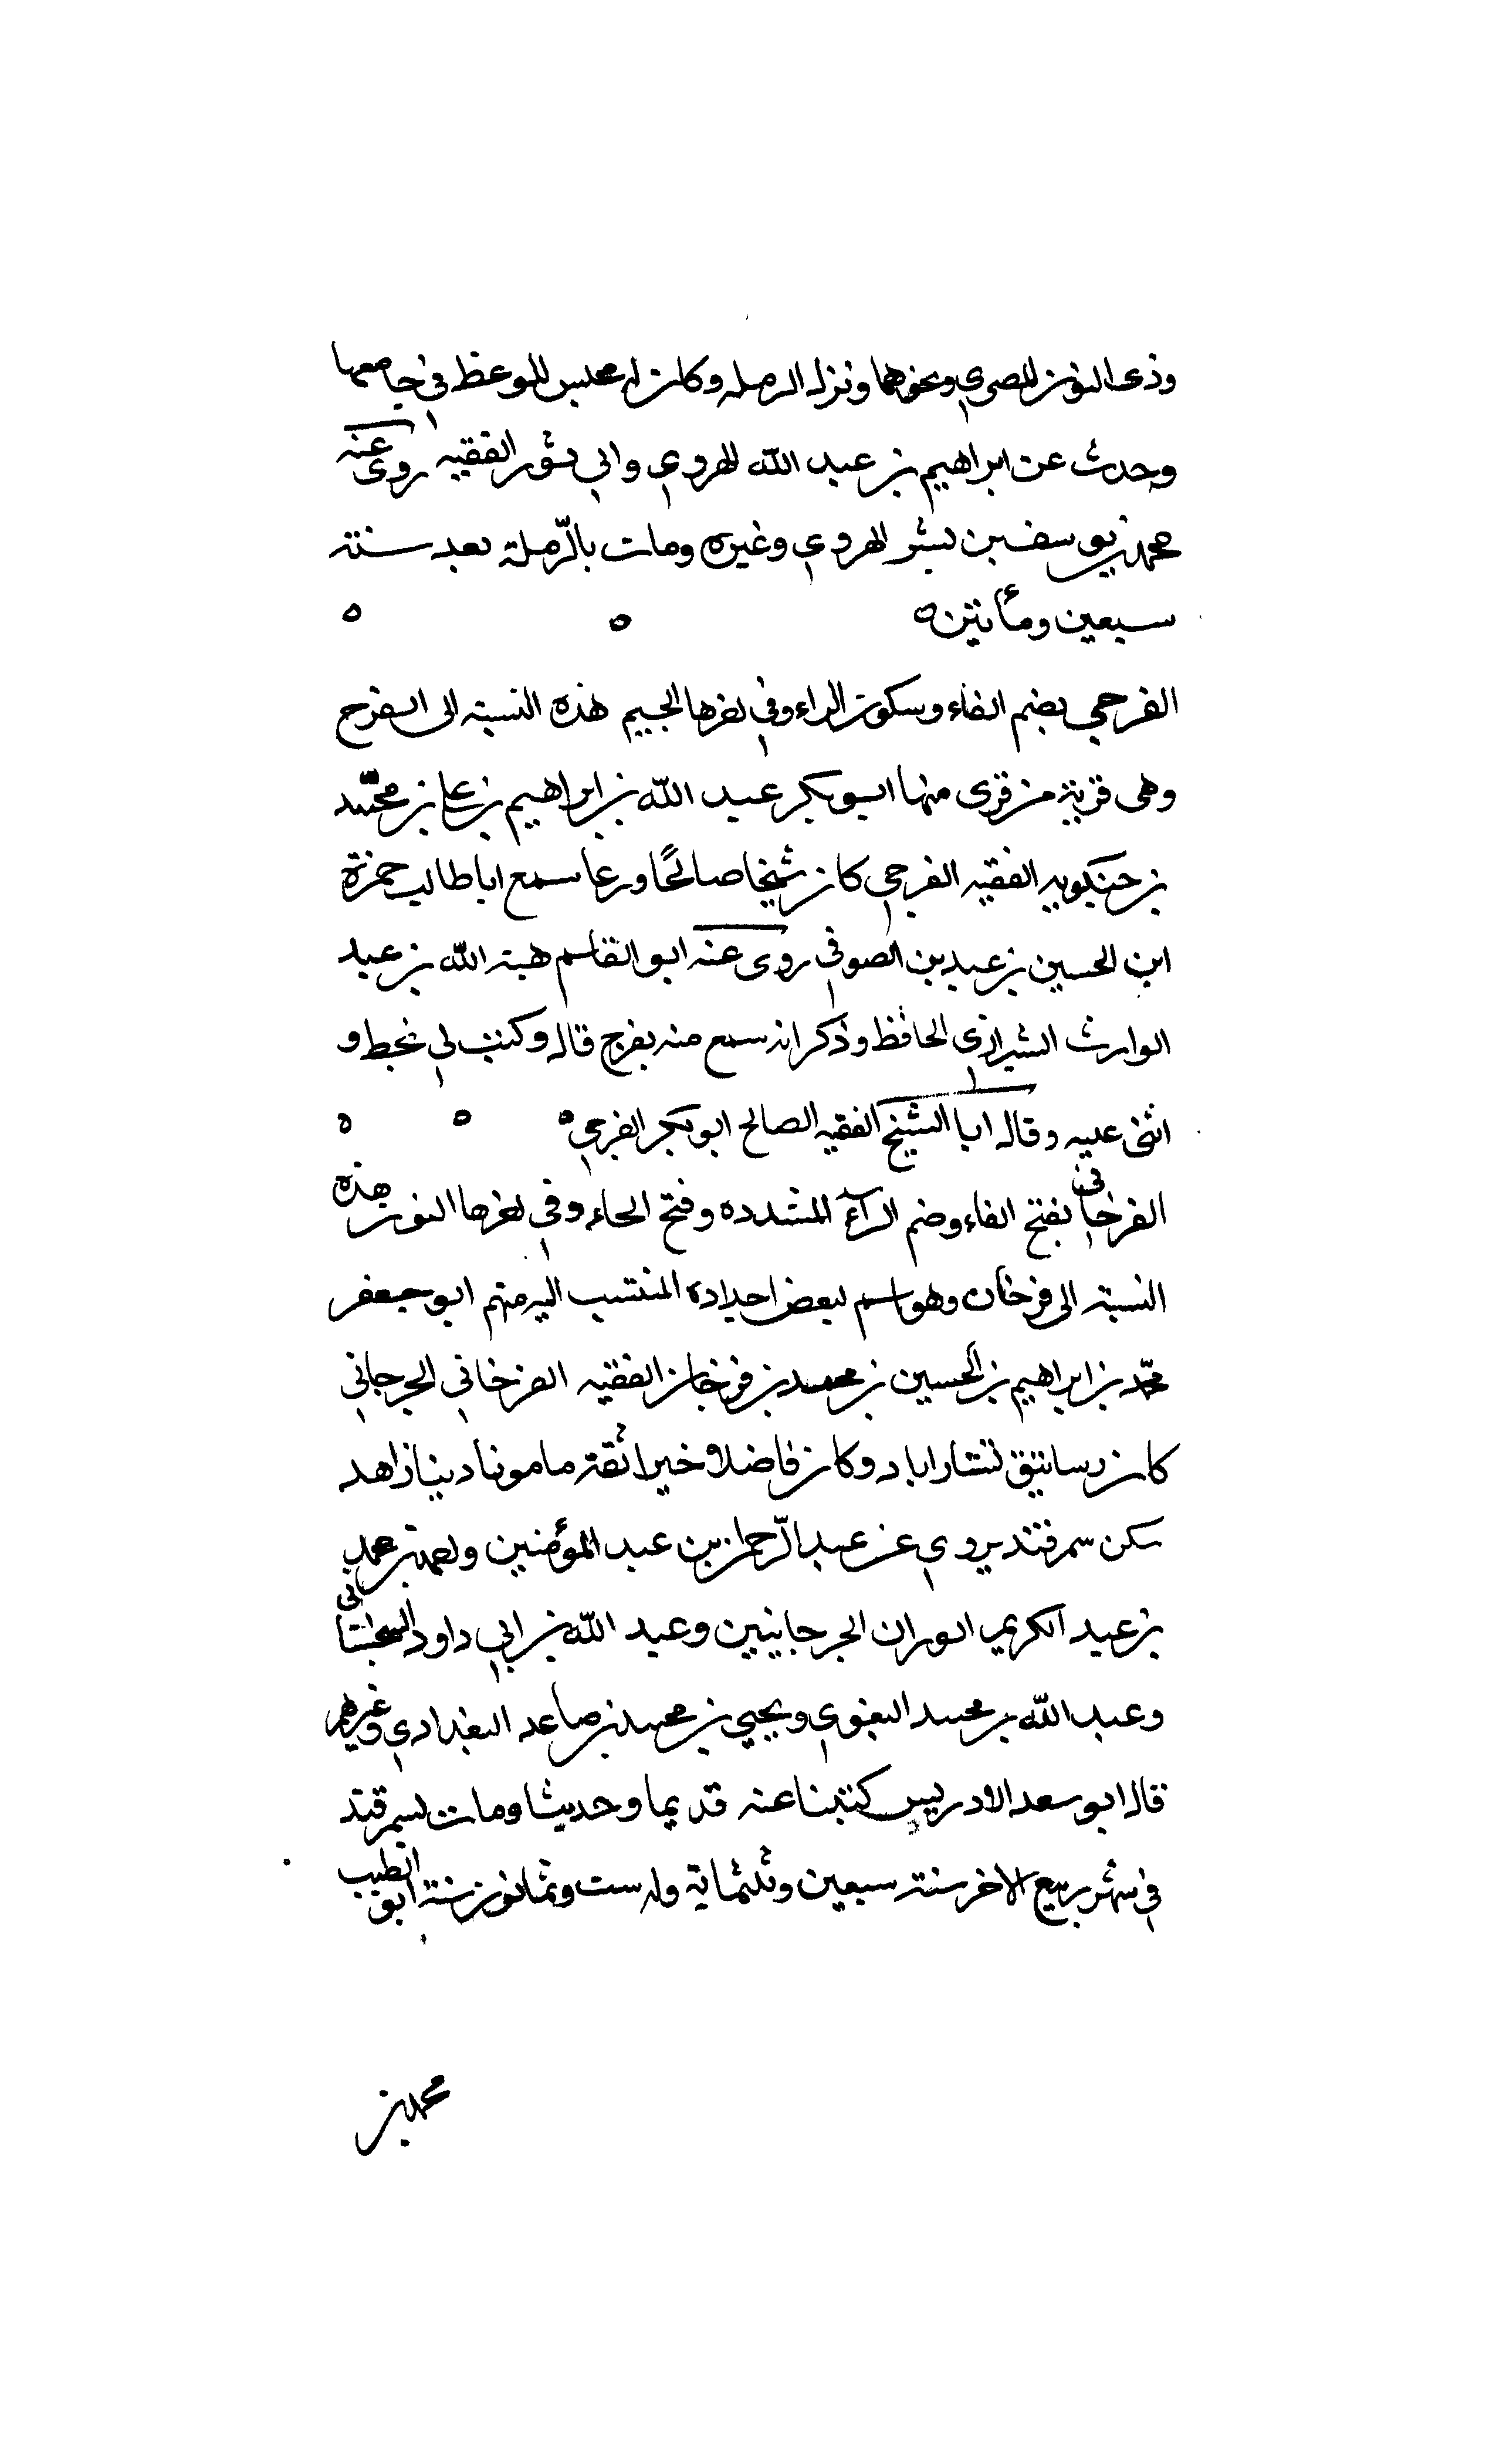 وذى النون المصري ونحوهما ونزل الرمله وكان له مجلس للوعظ في جامعها
وحدث عن ابراهيم بن عبد الله الهروي وابي ثور الفقيه روى عنه
محمد بن يوسف بن بشر الهروي وغيره ومات بالرّملة بعد سنة
سبعين ومأتين ه ه ه
الفرجي بضم الفاء وسكون الراء وفي اخرها الجيم هذه النسبة الى الفرج
وهى قرية من قرى منها ابو بكر عبد الله بن ابراهيم بن على بن محمّد
بن جنكويه الفقيه الفرجي كان شيخا صالحًا ورعا سمع ابا طالب حمزة
ابن الحسين بن عبد بن الصوفي روى عنه ابو القاسم هبة الله بن عبد
الوارث الشيرازي الحافظ وذكر انه سمع منه بفرج قال وكتب لي بخط و
اثنى عليه وقال ابا الشيخ الفقيه الصالح ابو بكر الفرجي ه ه ه
الفرخانى بفتح الفاء وضم الرآء المشدده وفتح الحاء وفي اخرها النون هذه
النسبة الى فرخان وهو اسم لبعض اجداده المنتسب اليه منهم ابو جعفر
محمّد بن ابراهيم بن الحسين بن محمد بن فرخان الفقيه الفرخاني الجرجاني
كان رساتيق استاراباد وكان فاضلا خيرا ثقة مامونا دينا زاهد
سكن سمرقند يروي عن عبد الرّحمان بن عبد المؤمنين واحمد بن محمد
بن عبد الكريم الوران الجرجانيين وعبد الله بن ابي داود السجستانى
وعبد الله بن محمد البغوي ويحيي بن محمد بن صاعد البغدادي وغيرهم
قال ابو سعد الادريسي كتبنا عنه قديما وحديثا ومات بسمرقند
في شهر ربيع الاخر سنة سبعين وثلثماية وله ست وثمانون سنة ابو الطيب
محمد بن